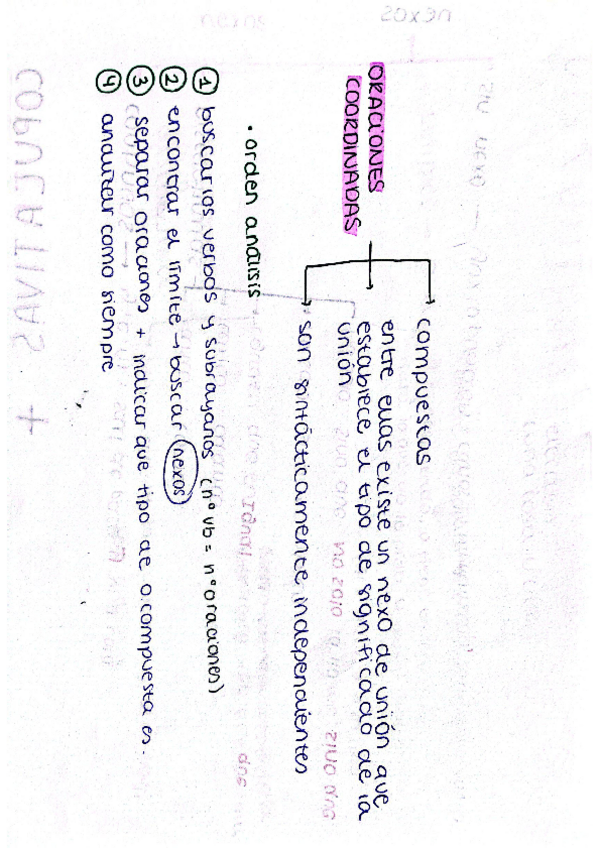 ORACIONES
COORDINADAS
compuestas
entre ellas existe un nexo de unión que
establece el tipo de significado de la
unión
son sintácticamente independientes
• orden análisis
1 buscarlos verbos y subrayarlos (nº vb = nº oraciones)
2 encontrar el límite → buscar nexos
3 separar oraciones + indicar que tipo de o. compuesta es.
4 analizar como siempre